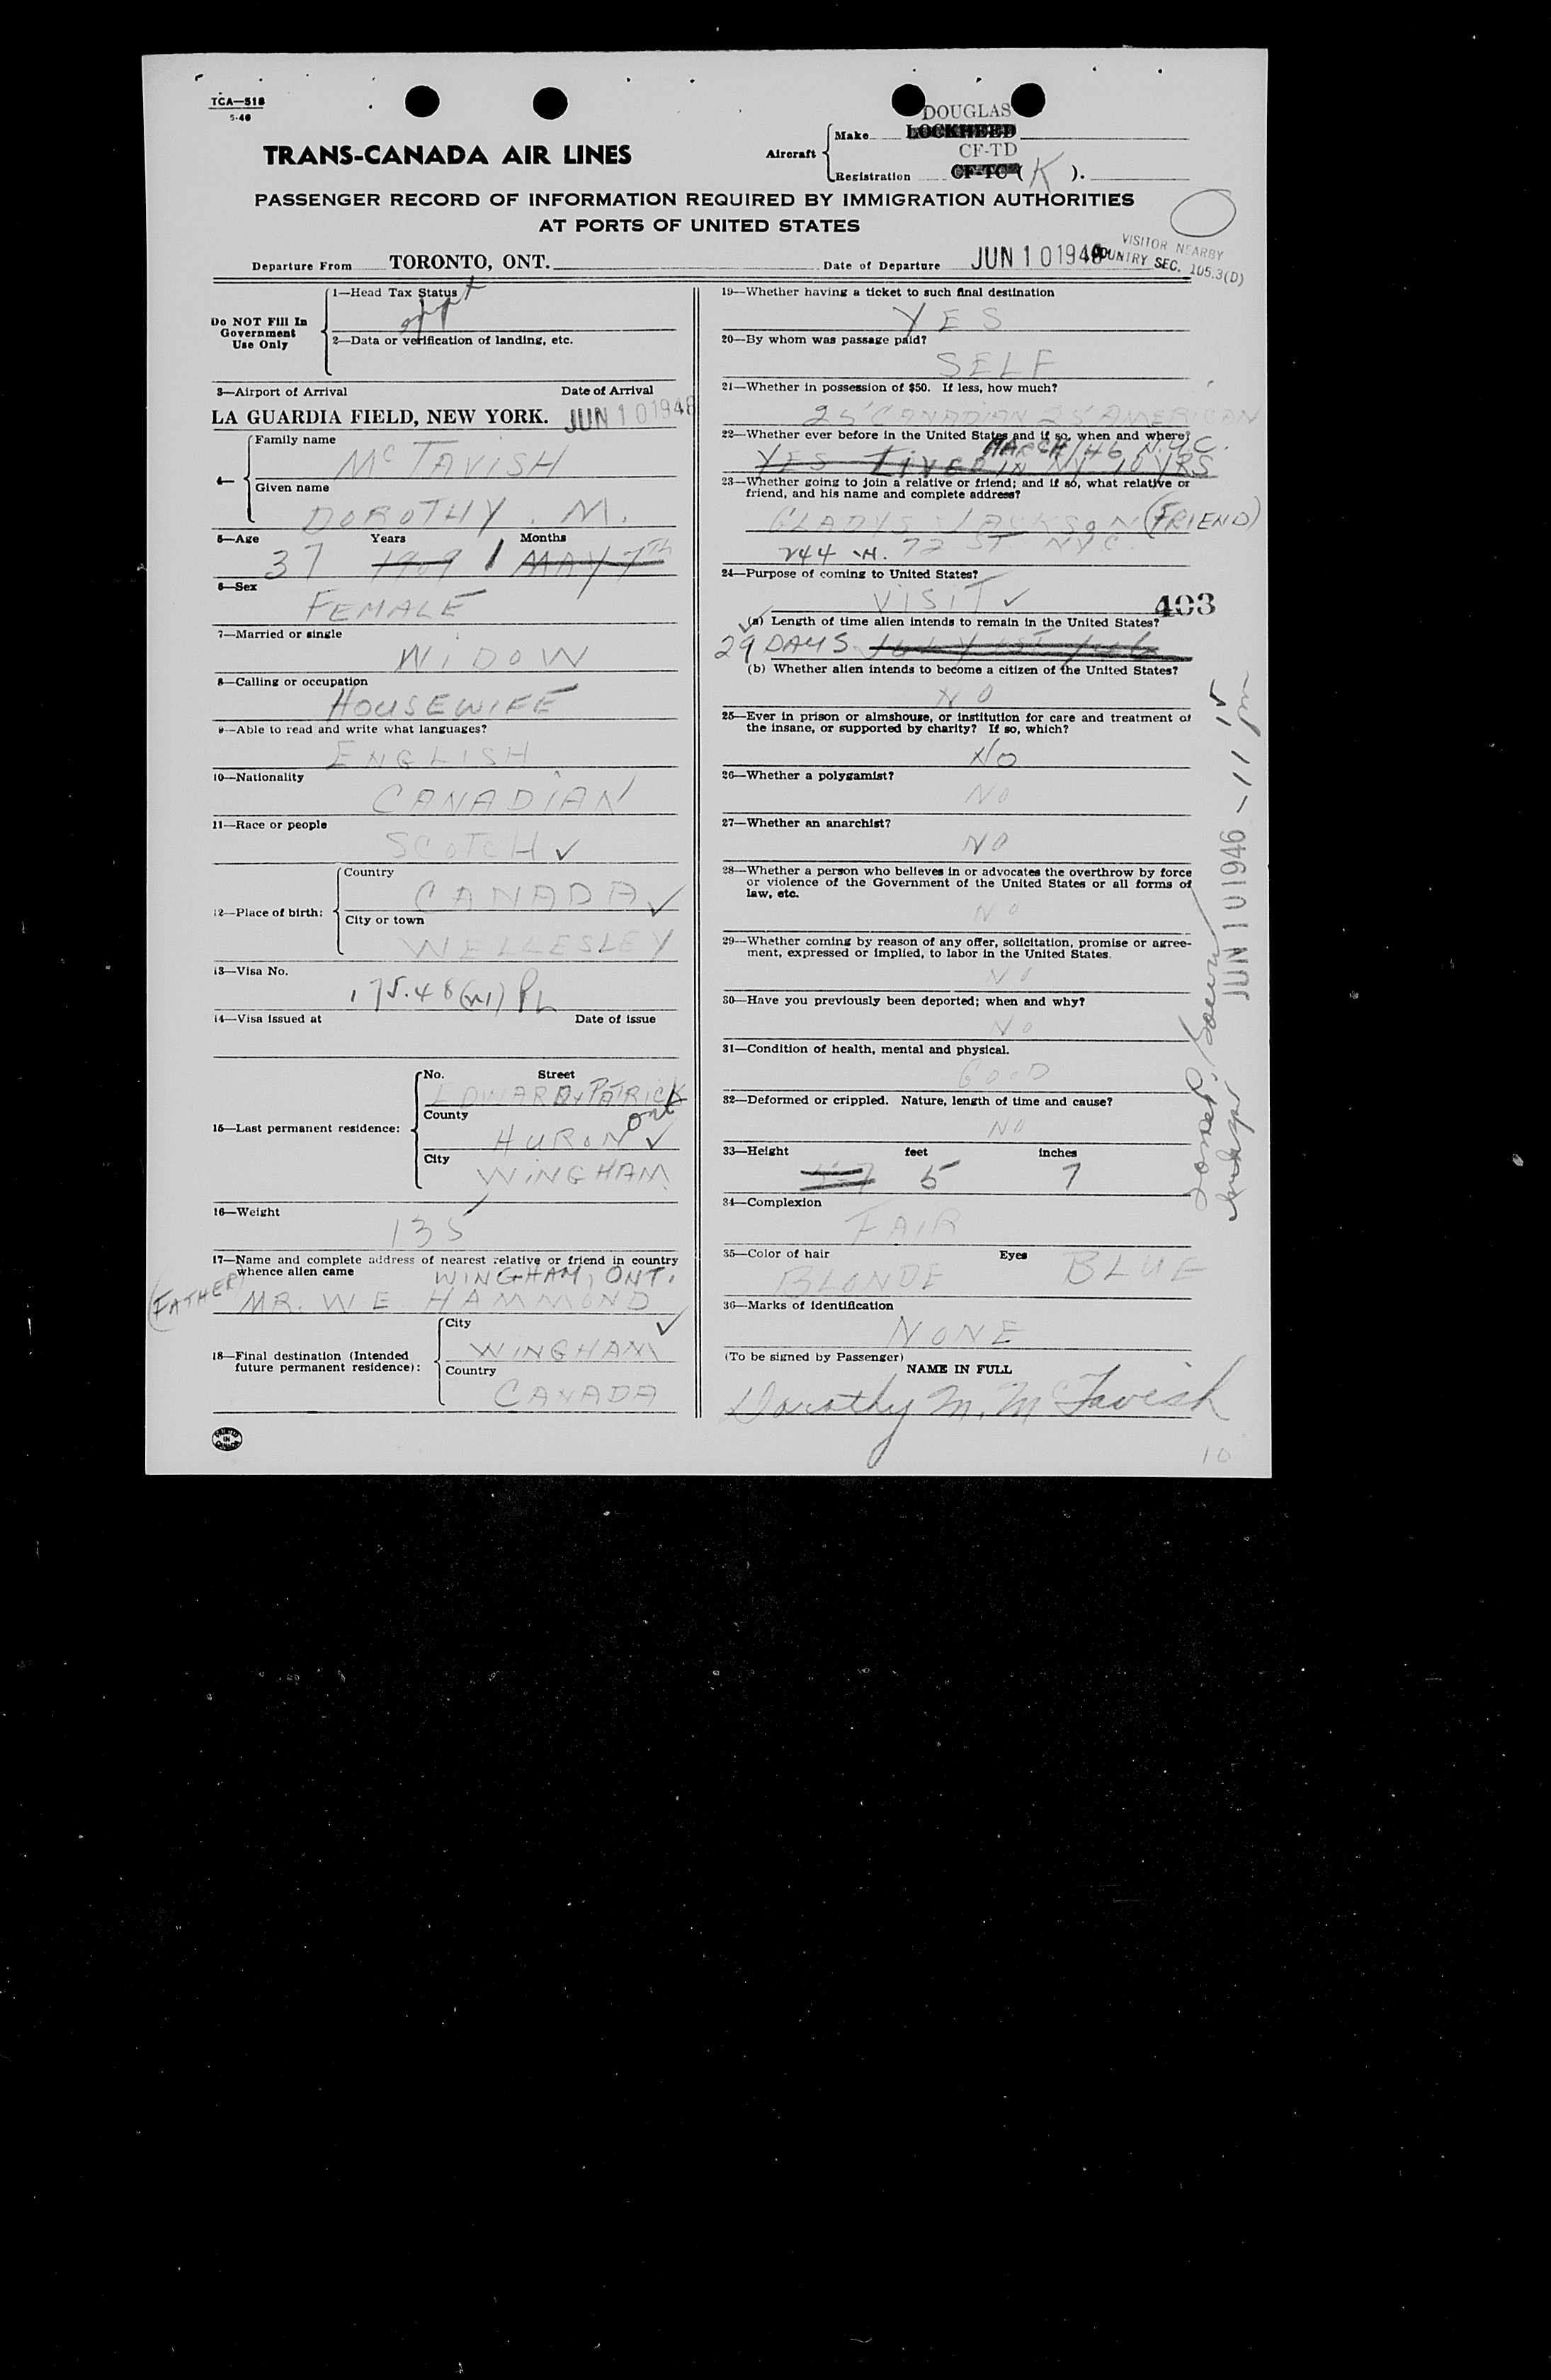 TCA—518
5-46
DOUGLAS
Make LOCKHEED
TRANS-CANADA AIR LINES
Aircraft
CF-TD
Registration CF-TC ( K ).
PASSENGER RECORD OF INFORMATION REQUIRED BY IMMIGRATION AUTHORITIES
AT PORTS OF UNITED STATES
VISITOR NEARBY
COUNTRY SEC. 105.3(D)
Departure From TORONTO, ONT. Date of Departure JUN 10 1946
1—Head Tax Status
Do NOT Fill In
Government
Use Only
2—Data or verification of landing, etc.
3—Airport of Arrival Date of Arrival
LA GUARDIA FIELD, NEW YORK. JUN 10 1946
Family name
McTAVISH
4—
Given name
DOROTHY. M.
5—Age Years Months
37 1909 1 MAY 7TH
6—Sex
FEMALE
7—Married or single
WIDOW
8—Calling or occupation
HOUSEWIFE
9—Able to read and write what languages?
ENGLISH
10—Nationality
CANADIAN
11—Race or people
SCOTCH ✓
Country
CANADA ✓
12—Place of birth:
City or town
WELLESLEY
13—Visa No.
175.48 PL
14—Visa issued at Date of issue
No. Street
EDWARD & PATRICK
County Ont
15—Last permanent residence:
HURON ✓
City
WINGHAM
16—Weight
135
17—Name and complete address of nearest relative or friend in country
whence alien came
WINGHAM, ONT.
(FATHER) MR. W E HAMMOND
City ✓
WINGHAM
18—Final destination (Intended
future permanent residence):
Country
CANADA
PRINTED
IN
CANADA
19—Whether having a ticket to such final destination
YES
20—By whom was passage paid?
SELF
21—Whether in possession of $50. If less, how much?
25 CANADIAN 25 AMERICAN
22—Whether ever before in the United States and if so, when and where?
MARCH/46 N.Y.C.
YES LIVED IN NY 10 YRS
23—Whether going to join a relative or friend; and if so, what relative or
friend, and his name and complete address?
GLADYS JACKSON (FRIEND)
244 W. 72 ST NYC
24—Purpose of coming to United States?
VISIT ✓ 403
(a) Length of time alien intends to remain in the United States?
29 DAYS
(b) Whether alien intends to become a citizen of the United States?
NO
25—Ever in prison or almshouse, or institution for care and treatment of
the insane, or supported by charity? If so, which?
NO
26—Whether a polygamist?
NO
27—Whether an anarchist?
NO
28—Whether a person who believes in or advocates the overthrow by force
or violence of the Government of the United States or all forms of
law, etc.
NO
29—Whether coming by reason of any offer, solicitation, promise or agree-
ment, expressed or implied, to labor in the United States.
NO
30—Have you previously been deported; when and why?
NO
31—Condition of health, mental and physical.
GOOD
32—Deformed or crippled. Nature, length of time and cause?
NO
33—Height feet inches
5 7
34—Complexion
FAIR
35—Color of hair Eyes
BLONDE BLUE
36—Marks of identification
NONE
(To be signed by Passenger)
NAME IN FULL
Dorothy M. McTavish
10
JUN 10 1946 - 11 15 pm